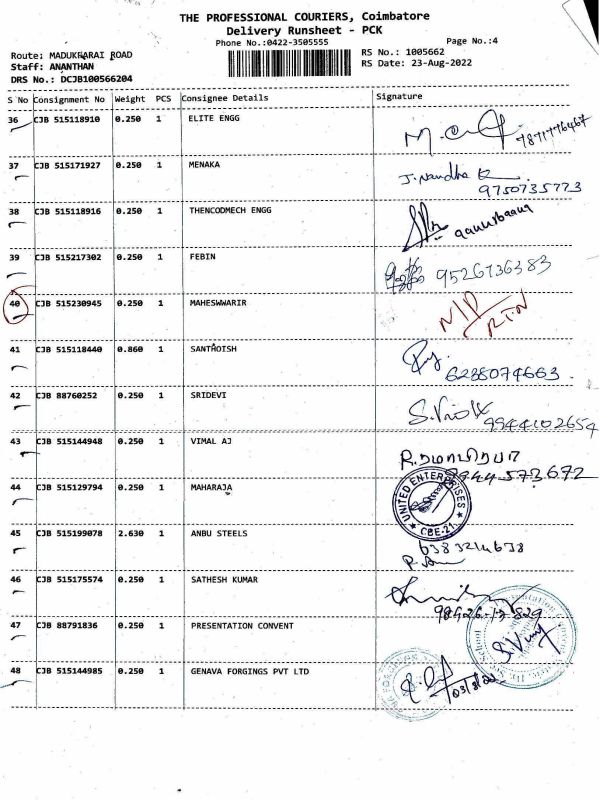 THE PROFESSIONAL COURIERS, Coimbatore
Delivery Runsheet - PCK
Phone No.:0422-3505555
Page No.:4
Route: MADUKKARAI ROAD
RS No.: 1005662
Staff: ANANTHAN
RS Date: 23-Aug-2022
DRS No.: DCJB100566204
S No Consignment No Weight PCS Consignee Details Signature
36 CJB 515118910 0.250 1 ELITE ENGG
7871776467
37 CJB 515171927 0.250 1 MENAKA J. Nandha K
9750735773
38 CJB 515118916 0.250 1 THENCODMECH ENGG
39 CJB 515217302 0.250 1 FEBIN 9526736383
40 CJB 515230945 0.250 1 MAHESWWARIR N/D
RTN
41 CJB 515118440 0.860 1 SANTHOISH
6238074663.
42 CJB 88760252 0.250 1 SRIDEVI
9944102654
43 CJB 515144948 0.250 1 VIMAL AJ
9944573672
44 CJB 515129794 0.250 1 MAHARAJA UNITED ENTERPRISES
CBE-21
45 CJB 515199078 2.630 1 ANBU STEELS 6383214638
46 CJB 515175574 0.250 1 SATHESH KUMAR
47 CJB 88791836 0.250 1 PRESENTATION CONVENT
48 CJB 515144985 0.250 1 GENAVA FORGINGS PVT LTD